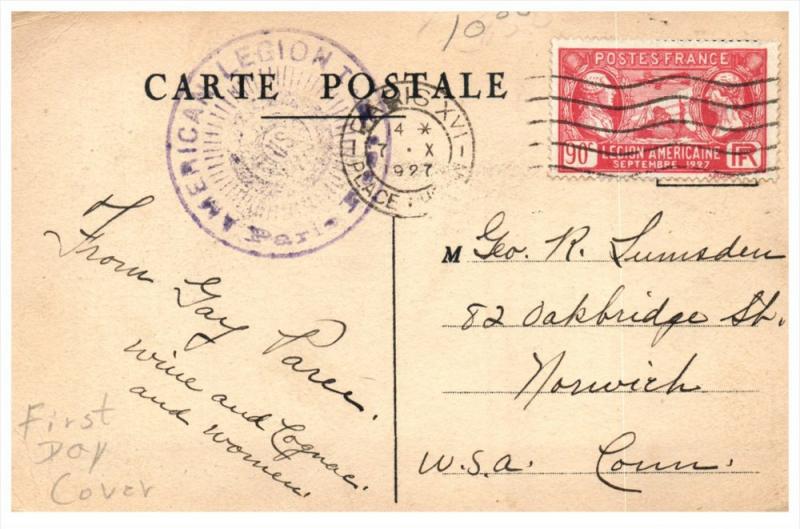 10
CARTE POSTALE
AMERICAN LEGION
Paris
PARIS XVI
4 *
7 · X
927
PLACE
POSTES·FRANCE
90c LEGION AMERICAINE RF
SEPTEMBRE 1927
From Gay Paree.
wine and Cognac.
and women.
First
Day
Cover
M Geo. R. Lumsden
82 Oakbridge St.
Norwich
U.S.A. Conn.